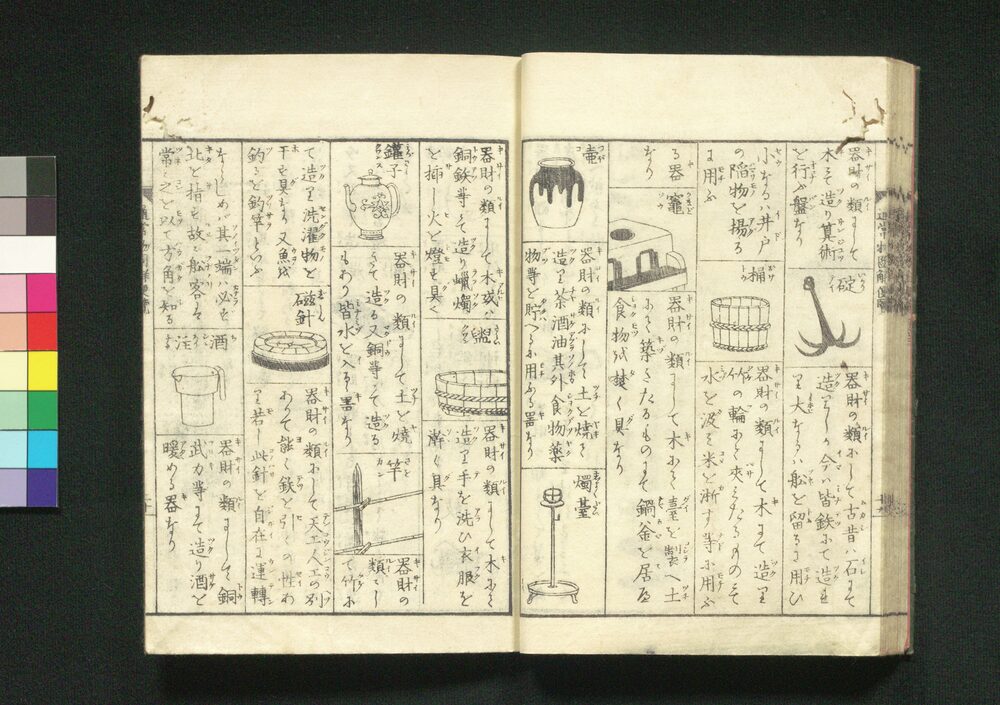 器財の類にして
木にて造り算術
を行ふ盤なり
碇
器財の類にして古昔ハ石にて
造りしが今ハ皆鉄にて造れ
り大なるハ船を留るに用ひ
小なるハ井戸
の陥物を揚る
に用ふ
桶
器財の類にして木にて造り
竹の輪にて夾みたるものにて
水を汲み米を淅す等に用ふ
る器
なり
竈
器財の類にして木にて臺を製へ土
にて築きたるものにて鍋釜を居置
食物を煑く具なり
壷
器財の類にして土を焼て
造り茶酒油其外食物薬
物等を貯へるに用ふる器なり
燭臺
器財の類にして木或ハ
銅鉄等にて造り蠟燭
を挿し火を燈す具
盥
器財の類にして木にて
造り手を洗ひ衣服を
澣ぐ具なり
鑵子
器財の類にして土を焼
きて造る又銅等にて造る
もあり皆水を入る器なり
竿
器財の
類にし
て竹に
て造り洗濯物を
干す具なり又魚を
釣るを釣竿といふ
磁針
器財の類にして天工人工の別
ありて能く鉄を引くの性あ
り若し此針を自在に運轉
なさしめバ其一端ハ必ず
北を指す故に船客ハ
常に之を以て方角を知る
酒注
器財の類にして銅
武力等にて造り酒を
暖める器なり